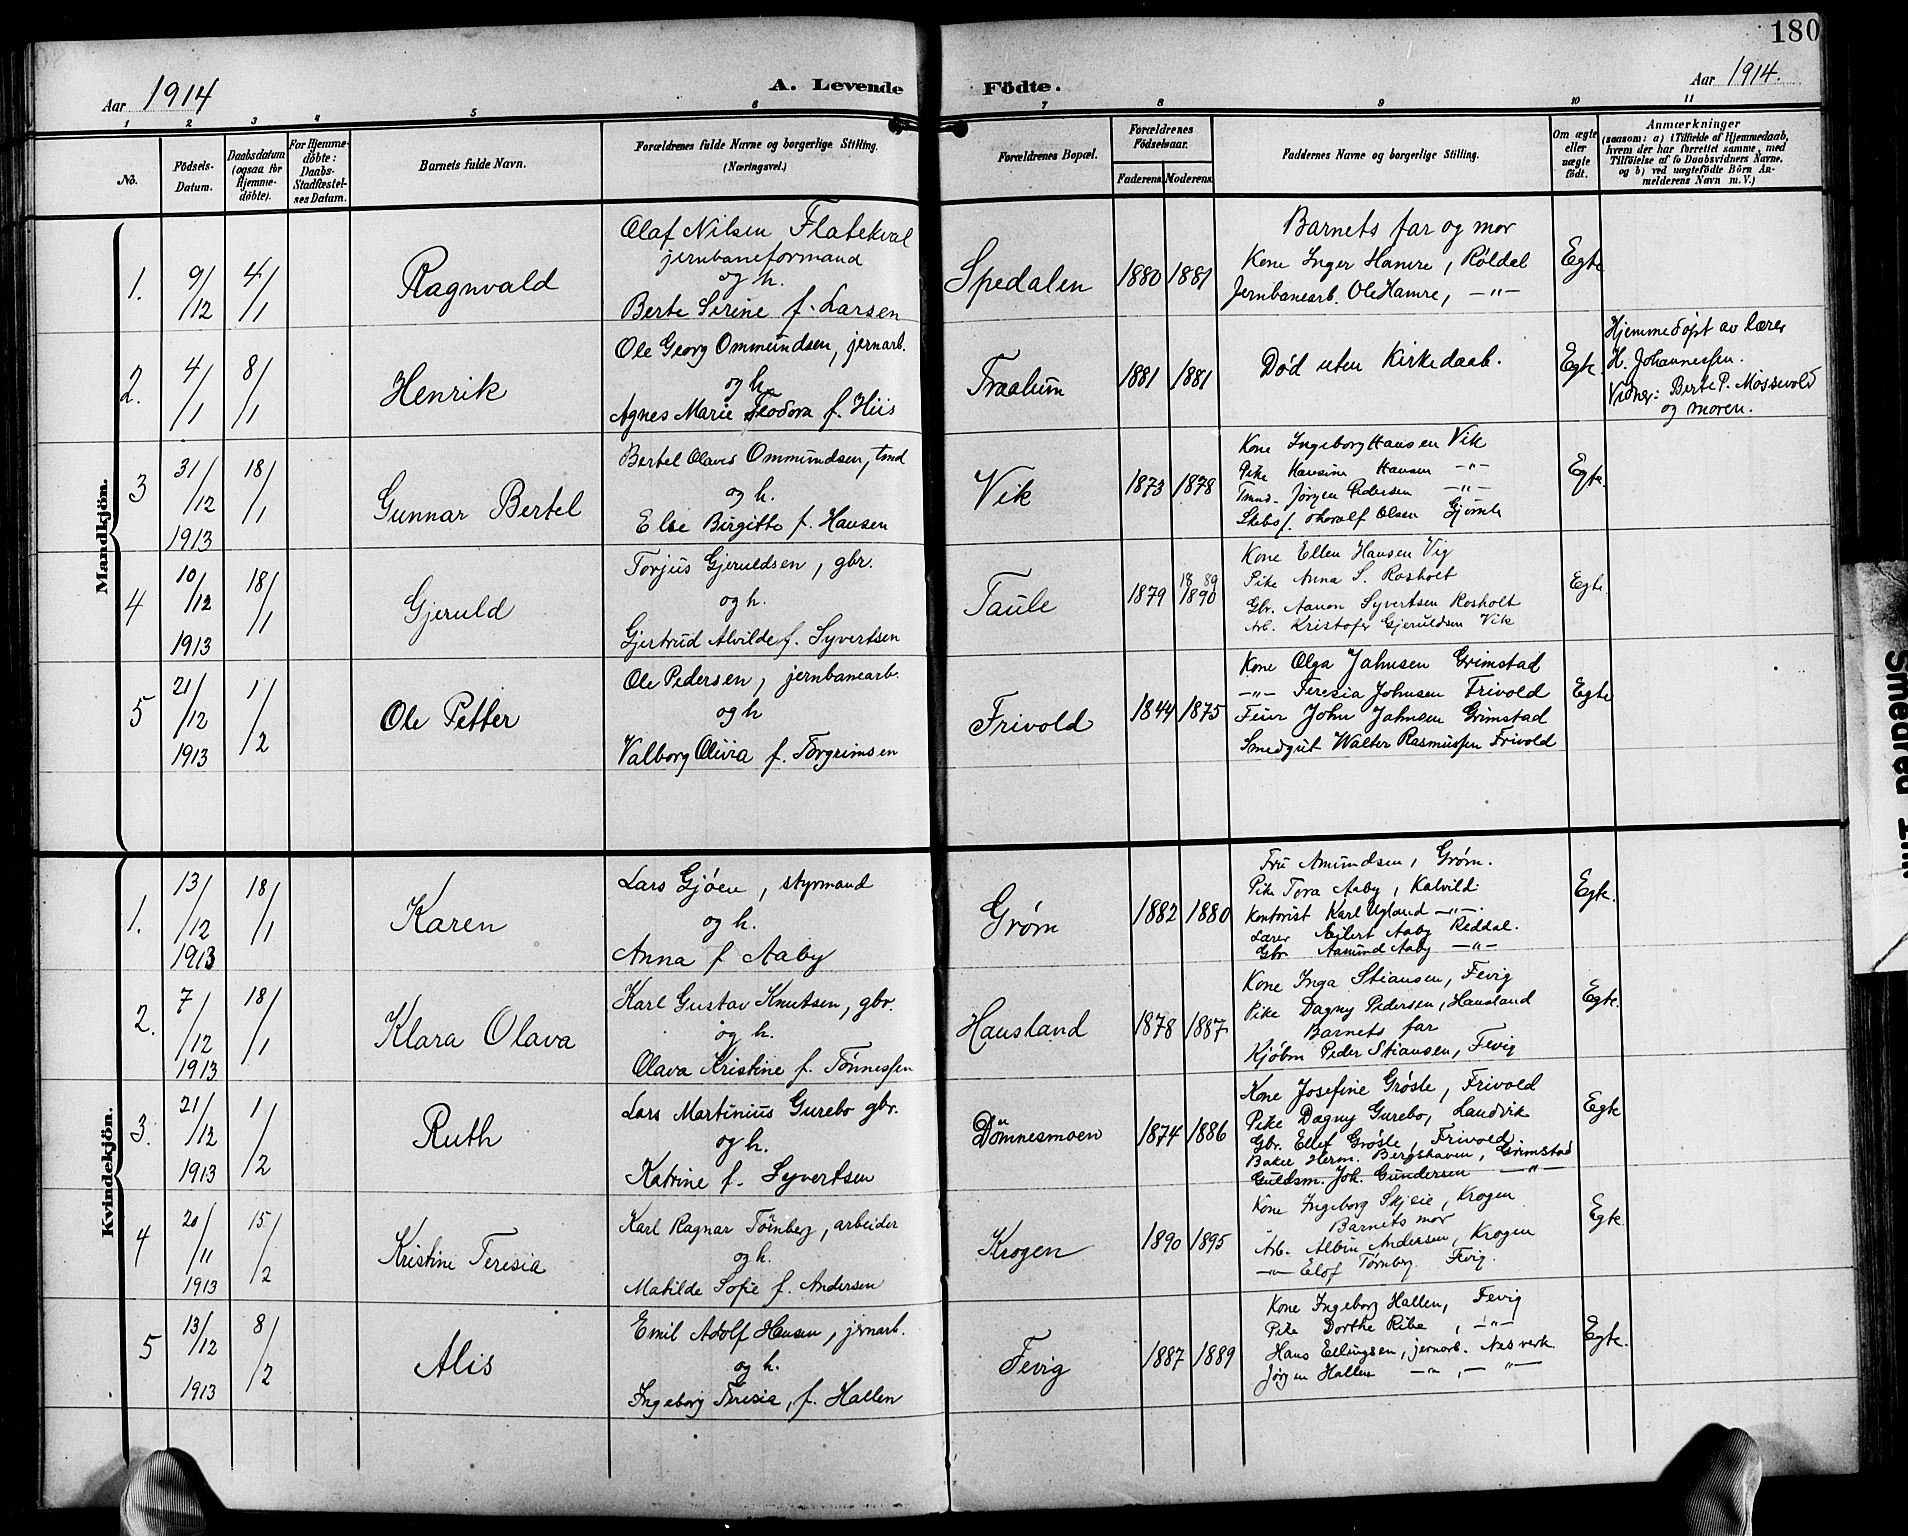 180
Aar 1914
A. Levende
Födte.
Aar 1914.
1 2 3 4 5 6 7 8 9 10 11
No.
Födsels-
Datum.
Daabsdatum
(ogsaa for
Hjemme-
döbte).
For Hjemme-
döbte:
Daabs-
Stadfæstel-
ses Datum.
Barnets fulde Navn.
Forældrenes fulde Navne og borgerlige Stilling.
(Næringsvei.)
Forældrenes Bopæl.
Forældrenes
Födselsaar.
Faderens. Moderens.
Faddernes Navne og borgerlige Stilling.
Om ægte
eller
uægte
födt.
Anmærkninger
(saasom: a) i Tilfælde af Hjemmedaab,
hvem der har forrettet samme, med
Tilföielse af to Daabsvidners Navne.
og b) ved uægtefödte Börn An-
melderens Navn m. V.)
Mandkjön.
1. 9/12 4/1
Ragnvald
Olaf Nilsen Flatekval
jernbaneformand
og h.
Berte Serine f. Larsen
Spedalen
1880 1881
Barnets far og mor
Kone Inger Hamre, Røldal
Jernbanearb. Ole Hamre, -"-
Egte
2. 4/1 8/1
Henrik
Ole Georg Ommundsen, jernarb.
og h.
Agnes Marie Teodora f. Hiis
Traalum
1881 1881
Død uten Kirkedaab.
Egte.
Hjemmedøpt av lærer
H. Johannessen.
Vidner: Berte P. Mossevold
og moren.
3 31/12 1913 18/1
Gunnar Bertel
Bertel Olaves Ommundsen, tmd
og h.
Else Birgitte f. Hansen
Vik
1873 1878
Kone Ingeborg Hansen Vik
Pike Hansine Hansen -"-
Tmd. Jørgen Pedersen -"-
Skibsf. Thoralf Olsen Gjømle
Egte.
4 10/12 1913 18/1
Gjeruld
Torjus Gjeruldsen, gbr.
og h.
Gjertrud Alvilde f. Syvertsen
Taule
1879 1890
18 89
Kone Ellen Hansen Vig
Pike Anna S. Rosholt
Gbr. Aanon Syvertsen Rosholt
Arb. Kristofer Gjeruldsen Vik
Egte.
5 21/12 1913 1/2
Ole Petter
Ole Pedersen, jernbanearb.
og h
Valborg Olivia f. Torgrimsen
Frivold
1844 1875
Kone Olga Jahnsen Grimstad
-"- Teresia Johnsen Frivold
Feier John Jahnsen Grimstad
Smedgut Walter Rasmussen Frivold
Egte
Kvindekjön.
1. 13/12 1913 18/1
Karen
Lars Gjøen, styrmand
og h.
Anna f Aaby
Grøm
1882 1880
Fru Amundsen, Grøm.
Pike Tora Aaby, Kalvild
Kontorist Karl Ugland -"-
Lærer Eilert Aaby Reddal.
Gbr. Aamund Aaby -"-
Egte.
2. 7/12 1913 18/1
Klara Olava
Karl Gustav Knutsen, gbr.
og h.
Olava Kristine f. Tønnessen
Hausland
1878 1887
Kone Inga Stiansen, Fevig
Pike Dagny Pedersen, Hausland
Barnets far
Kjøbm Peder Stiansen, Fevig
Egte.
3. 21/12 1913 1/2
Ruth
Lars Martinius Gurebo gbr.
og h.
Katrine f. Syvertsen
Dömnesmoen
1874 1886
Kone Josefine Grøsle, Frivold
Pike Dagny Gurebo, Landvik
Gbr. Ellef Grøsle, Frivold
Baker Herm. Bergshaven, Grimstad
Guldsm. Joh. Gundersen -"-
Egte
4 20/11 1913 15/2
Kristine Teresia
Karl Ragnar Törnberg, arbeider
og h.
Matilde Sofie f. Andersen
Krogen
1890 1895
Kone Ingeborg Skjeie, Krogen
Barnets mor
Arb. Albin Andersen, Krogen
-"- Elof Törnberg. Fevig.
Egte.
5 13/12 1913 8/2
Alis
Emil Adolf Hansen, jernarb.
og h.
Ingeborg Teresie, f. Hallen
Fevig
1887 1889
Kone Ingeborg Hallen, Fevig
Pike Dorthe Ribe, -"-
Hans Ellingsen, jernarb. Nesverk
Jørgen Hallen -"-, -"-
Egte.